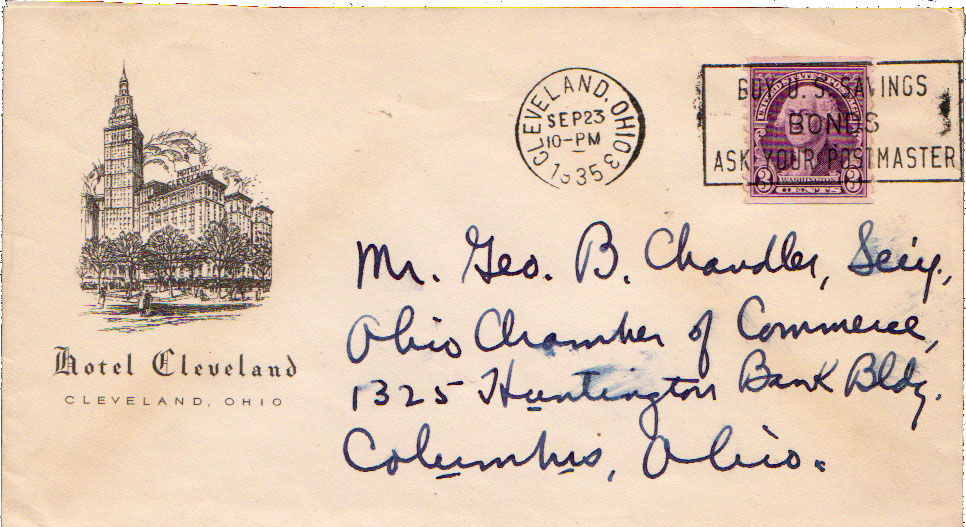 Hotel Cleveland
CLEVELAND, OHIO
CLEVELAND, OHIO 3
SEP 23
10-PM
1935
BUY U.S. SAVINGS
BONDS
ASK YOUR POSTMASTER
3 WASHINGTON 3
CENTS
Mr. Geo. B. Chandler, Secy.,
Ohio Chamber of Commerce,
1325 Huntington Bank Bldg.
Columbus, Ohio.